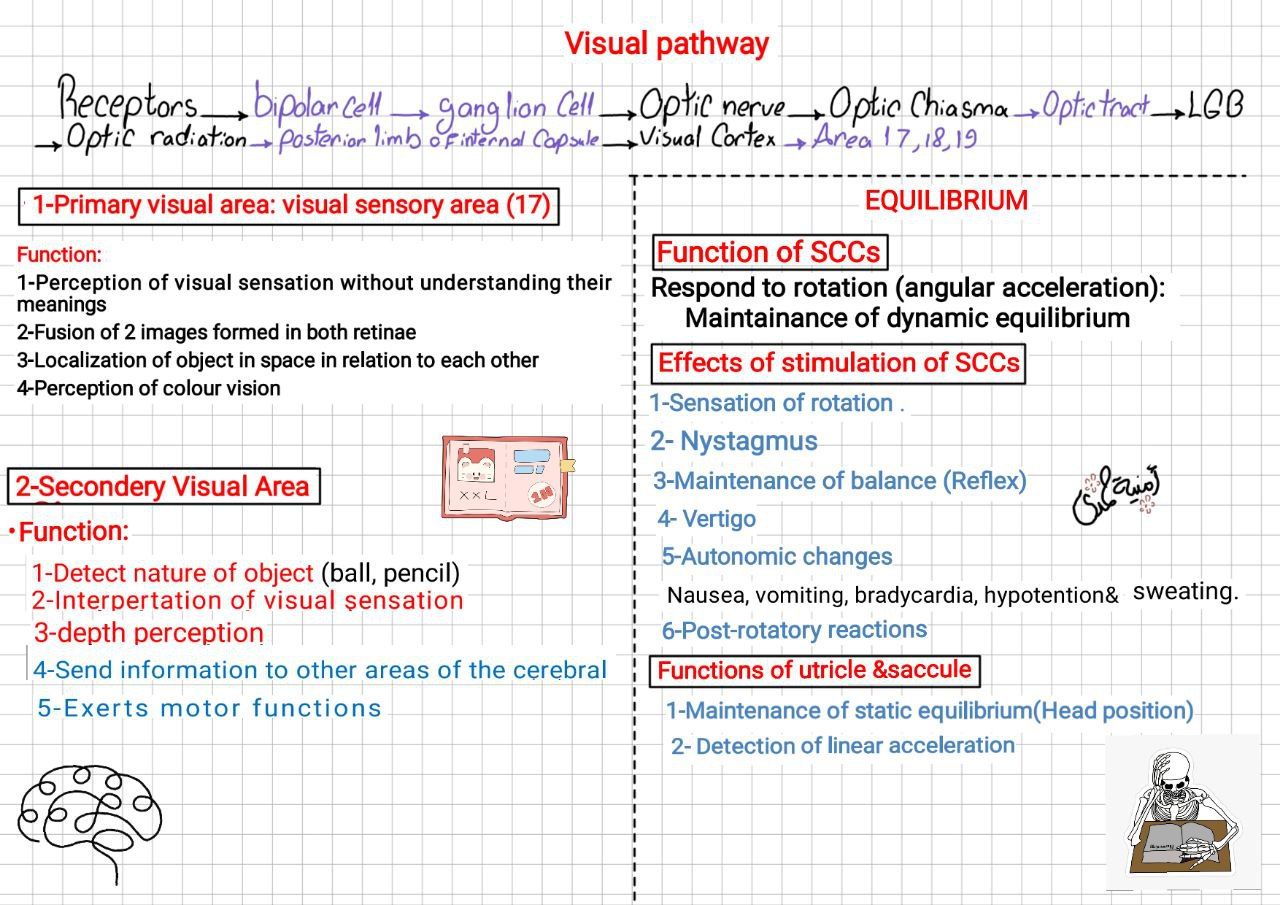 Visual pathway
Receptors → bipolar cell → ganglion Cell → Optic nerve → Optic Chiasma → Optic tract → LGB
→ Optic radiation → Posterior limb of internal Capsule → Visual Cortex → Area 17,18,19
1-Primary visual area: visual sensory area (17)
Function:
1-Perception of visual sensation without understanding their
meanings
2-Fusion of 2 images formed in both retinae
3-Localization of object in space in relation to each other
4-Perception of colour vision
XXL
2-Secondery Visual Area
•Function:
1-Detect nature of object (ball, pencil)
2-Interpertation of visual sensation
3-depth perception
4-Send information to other areas of the cerebral
5-Exerts motor functions
EQUILIBRIUM
Function of SCCs
Respond to rotation (angular acceleration):
Maintainance of dynamic equilibrium
Effects of stimulation of SCCs
1-Sensation of rotation .
2- Nystagmus
3-Maintenance of balance (Reflex)
4- Vertigo
5-Autonomic changes
Nausea, vomiting, bradycardia, hypotention& sweating.
6-Post-rotatory reactions
Functions of utricle &saccule
1-Maintenance of static equilibrium(Head position)
2- Detection of linear acceleration